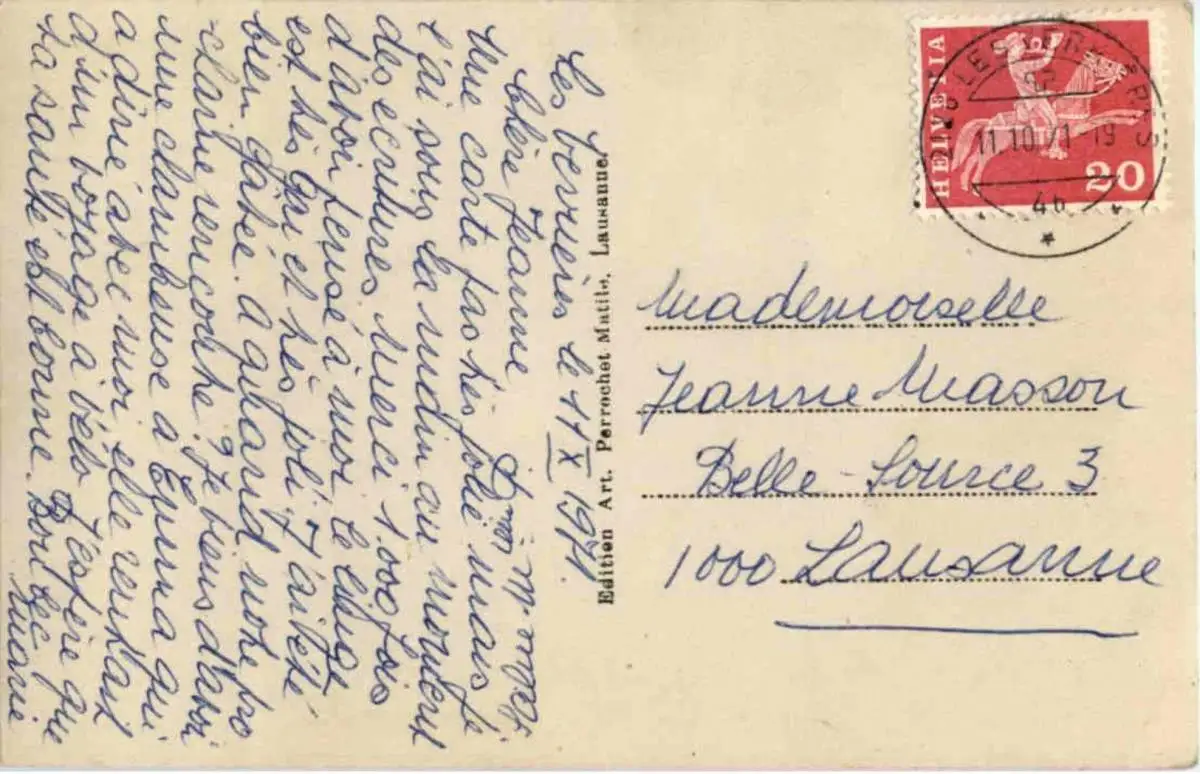 Les Verrières le 11 X 1971.
Chère Jeanne
Une carte pas très jolie mais je
l'ai sous la main au moment
des écritures. Merci 1.000 fois
d'avoir pensé à moi. Le linge
est très gai et très joli. J'ai été
bien gâtée. A quand notre pro
chaine rencontre? Je viens d'avoir
une chanceuse a Emma qui
a dîné avec moi elle rentrait
d'un voyage à vélo. J'espère que
la santé est bonne. Bon bec
Marie
Edition Art. Perrochet Matile, Lausanne.
HELVETIA
20
LES VERRIERES
11.10.71-19
Mademoiselle
Jeanne Masson
Belle-Source 3
1000 Lausanne